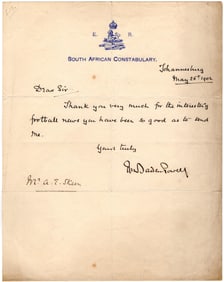 E. R.
SOUTH AFRICAN CONSTABULARY.
Johannesburg
May 25th 1902
Dear Sir
Thank you very much for the interesting
football news you have been so good as to send
me.
Yours truly
Baden Powell
Mr. A. E.